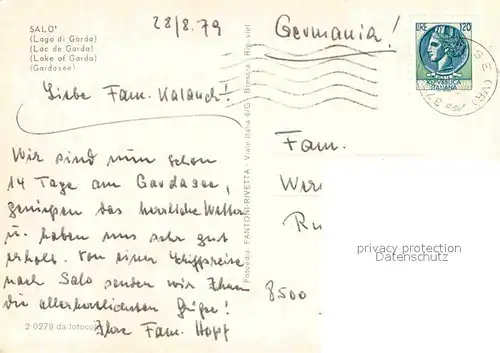 28/8.79
Germania!
SALO'
(Lago di Garda)
(Lac de Garda)
(Lake of Garda)
(Gardasee)
LIRE 120
REPUBBLICA
ITALIANA
SE (VR)
Liebe Fam. Kalauch!
Wir sind nun schon
14 Tage am Gardasee,
genießen das herrliche Wetter
u. haben uns sehr gut
erholt. Von einer Schiffsreise
nach Salo senden wir Ihnen
die allerherzlichsten Grüße!
Ihre Fam. Hopf
Fotoediz. FANTONI-RIVETTA - Viale Italia 6/G - Brescia - Rip. viet
Fam.
Wer
Ru
8500
privacy protection
Datenschutz
2 0279 da fotocol